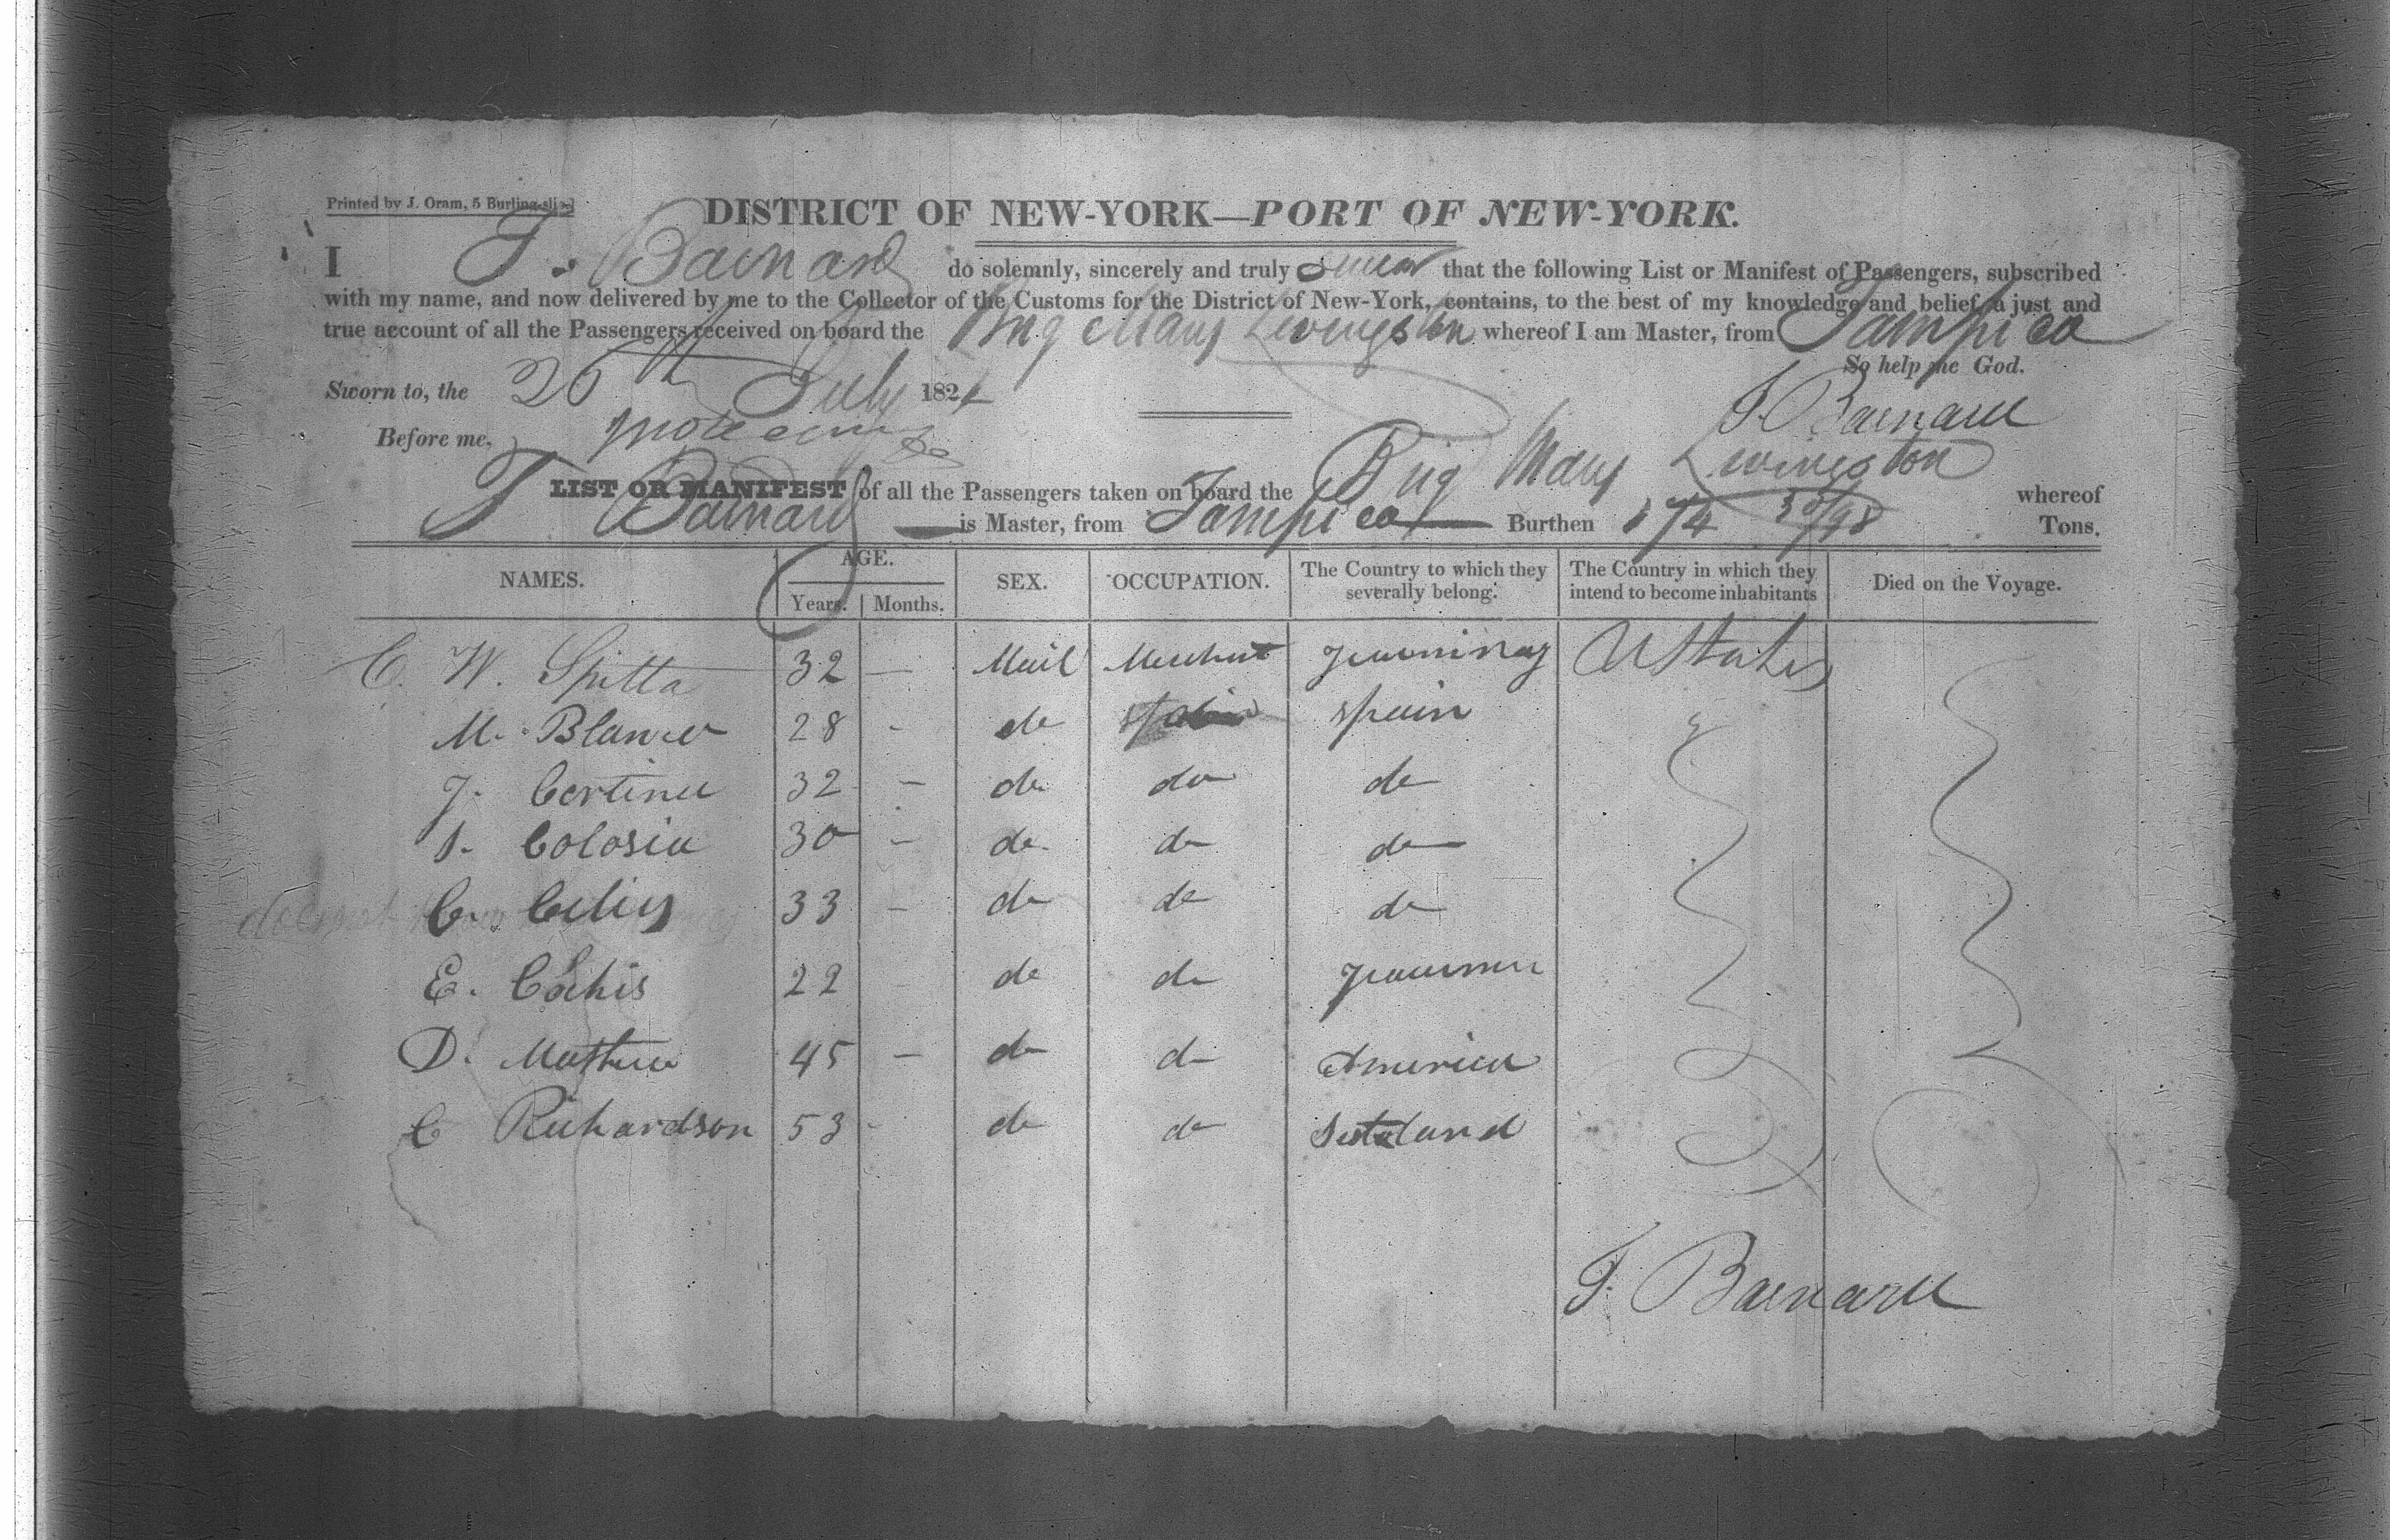 Printed by J. Oram, 5 Burling-slip
DISTRICT OF NEW-YORK—PORT OF NEW-YORK.
I F. Barnard do solemnly, sincerely and truly Swear that the following List or Manifest of Passengers, subscribed
with my name, and now delivered by me to the Collector of the Customs for the District of New-York, contains, to the best of my knowledge and belief, a just and
true account of all the Passengers received on board the Brig Mary Livingston whereof I am Master, from Tampico
So help me God.
Sworn to, the 26th July 182
F. Barnard
Before me,
LIST OR MANIFEST of all the Passengers taken on board the Brig Mary Livingston whereof
F Barnard is Master, from Tampico Burthen 174 Tons.
NAMES. AGE. SEX. OCCUPATION. The Country to which they severally belong. The Country in which they intend to become inhabitants Died on the Voyage.
Years. Months.
C. W. Spitta 32 — Mail Merchant UStates
M. Blanco 28 - do spain
J. 32 - do do do
30 - do do do
C. 33 - do do do
E. 22 do do
D. Mathew 45 - do do America
C Richardson 53 - do do
F. Barnard